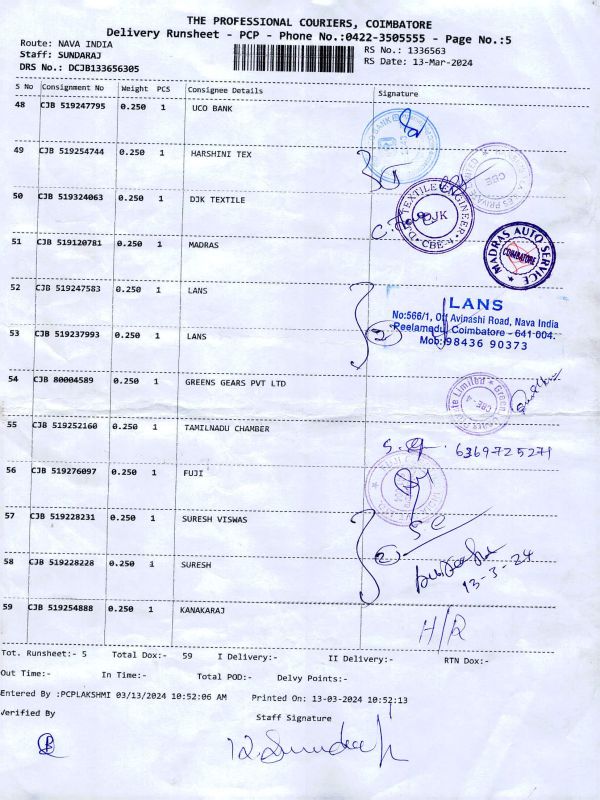 THE PROFESSIONAL COURIERS, COIMBATORE
Delivery Runsheet - PCP - Phone No.:0422-3505555 - Page No.:5
Route: NAVA INDIA
Staff: SUNDARAJ
DRS No.: DCJB133656305
RS No.: 1336563
RS Date: 13-Mar-2024
S No Consignment No Weight PCS Consignee Details Signature
48 CJB 519247795 0.250 1 UCO BANK
49 CJB 519254744 0.250 1 HARSHINI TEX
50 CJB 519324063 0.250 1 DJK TEXTILE
TEXTILE ENGINEER
DJK
CBE
51 CJB 519120781 0.250 1 MADRAS
MADRAS AUTO SERVICE
COIMBATORE
52 CJB 519247583 0.250 1 LANS
LANS
No:566/1, Off Avinashi Road, Nava India
Peelamedu, Coimbatore - 641 004.
Mob: 98436 90373
53 CJB 519237993 0.250 1 LANS
2
54 CJB 80004589 0.250 1 GREENS GEARS PVT LTD
CBE 4
55 CJB 519252160 0.250 1 TAMILNADU CHAMBER
6369725271
56 CJB 519276097 0.250 1 FUJI
57 CJB 519228231 0.250 1 SURESH VISWAS
58 CJB 519228228 0.250 1 SURESH
2
13-3-24
59 CJB 519254888 0.250 1 KANAKARAJ
H/R
Tot. Runsheet:- 5 Total Dox:- 59 I Delivery:- II Delivery:- RTN Dox:-
Out Time:- In Time:- Total POD:- Delvy Points:-
Entered By :PCPLAKSHMI 03/13/2024 10:52:06 AM Printed On: 13-03-2024 10:52:13
Verified By
Staff Signature